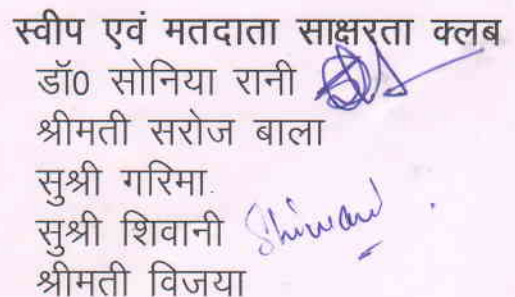 स्वीप एवं मतदाता साक्षरता क्लब
डॉ0 सोनिया रानी
श्रीमती सरोज बाला
सुश्री गरिमा
सुश्री शिवानी Shivani
श्रीमती विजया